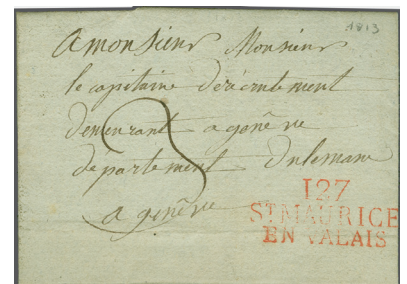 1813
a monsieur Monsieur
le capitaine de récrutement
demeurant a genêve
departement du leman
a genêve
3
127
ST MAURICE
EN VALAIS